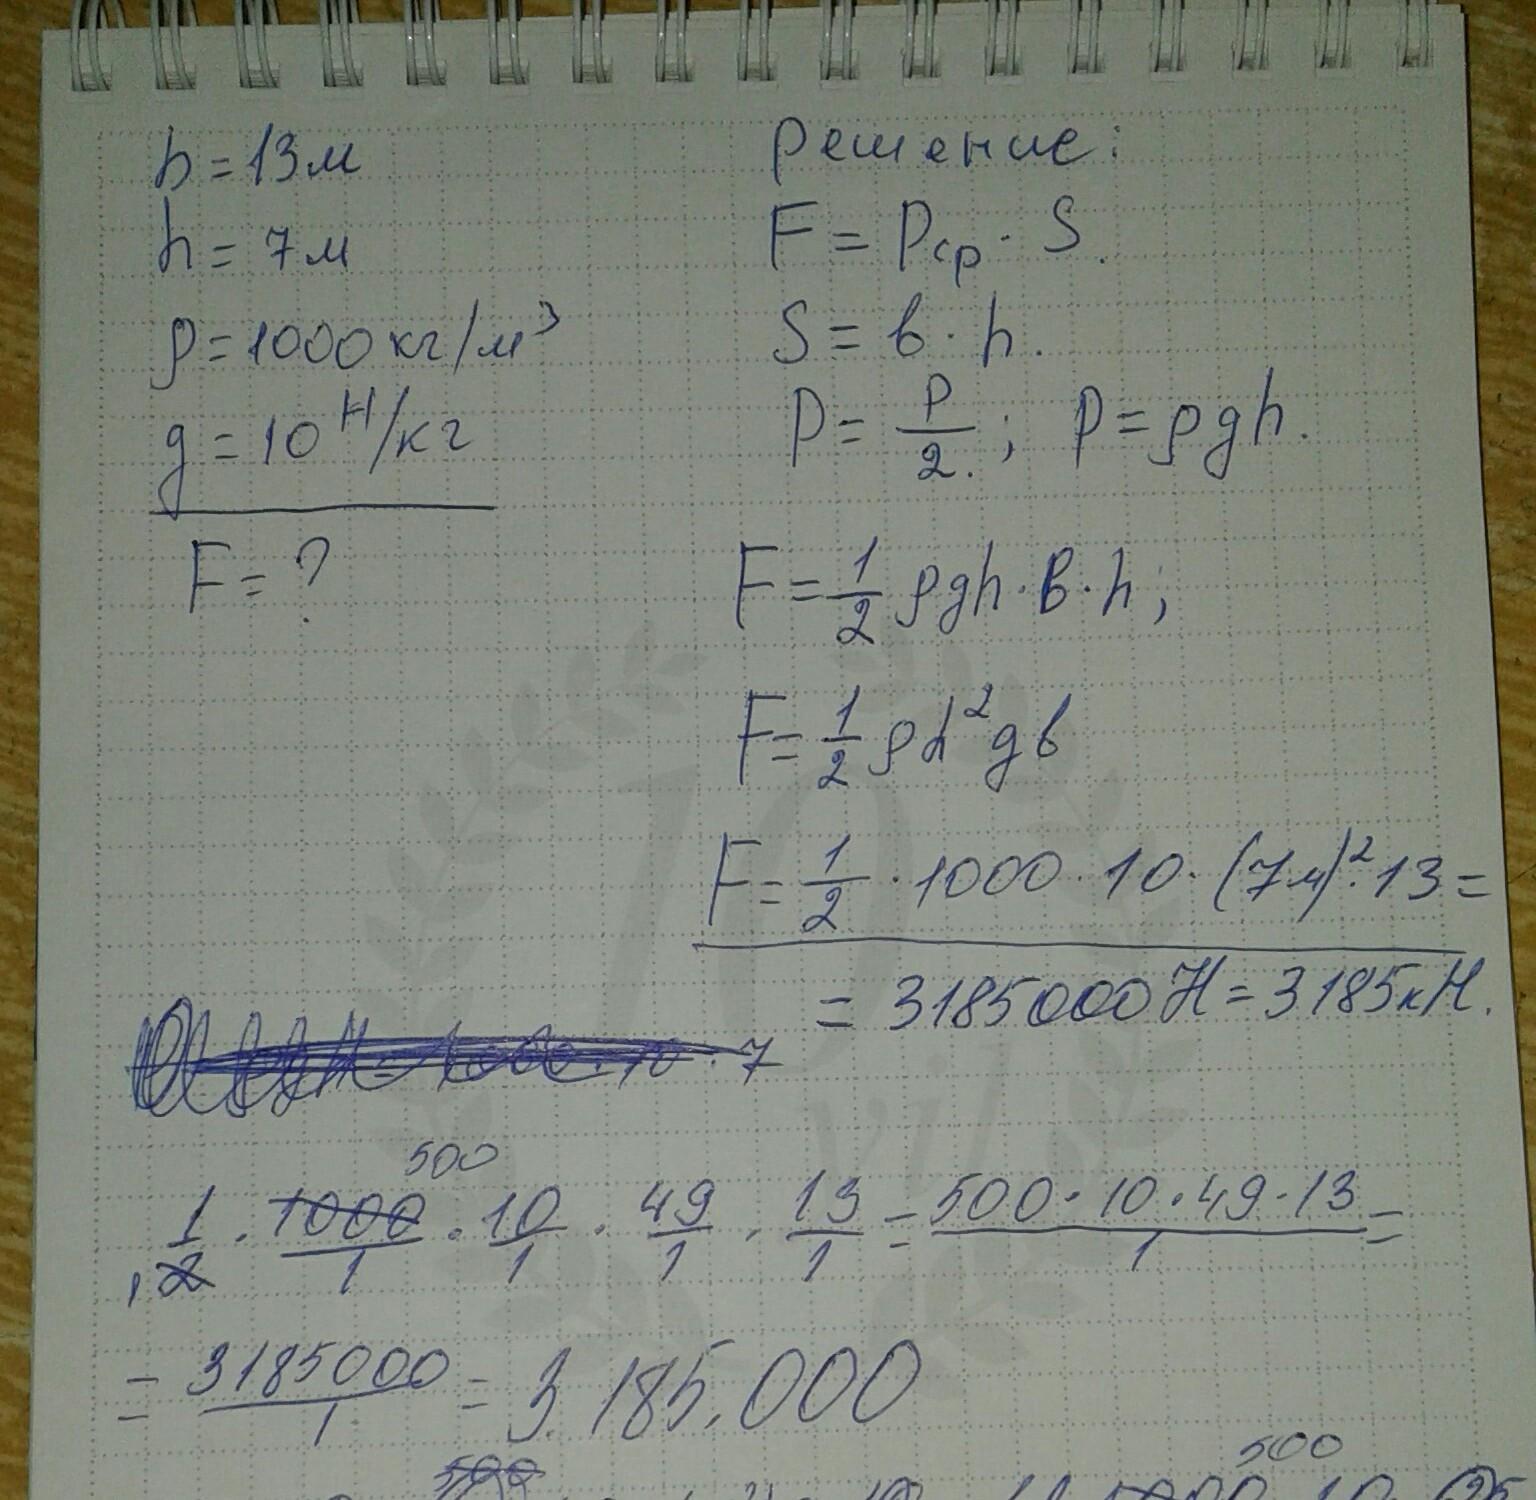 b = 13 м
h = 7 м
ρ = 1000 кг/м³
g = 10 Н/кг
F = ?
Решение:
F = Pср · S.
S = b · h.
P = P/2. ; P = ρgh.
F = 1/2 ρgh · b · h;
F = 1/2 ρh²gb
F = 1/2 · 1000 · 10 · (7м)² · 13 =
= 3185000 Н = 3185 кН.
· 10 · 7
500
1/2 · 1000/1 · 10/1 · 49/1 · 13/1 = 500 · 10 · 49 · 13/1 =
1
= 3185000/1 = 3.185.000
500
500